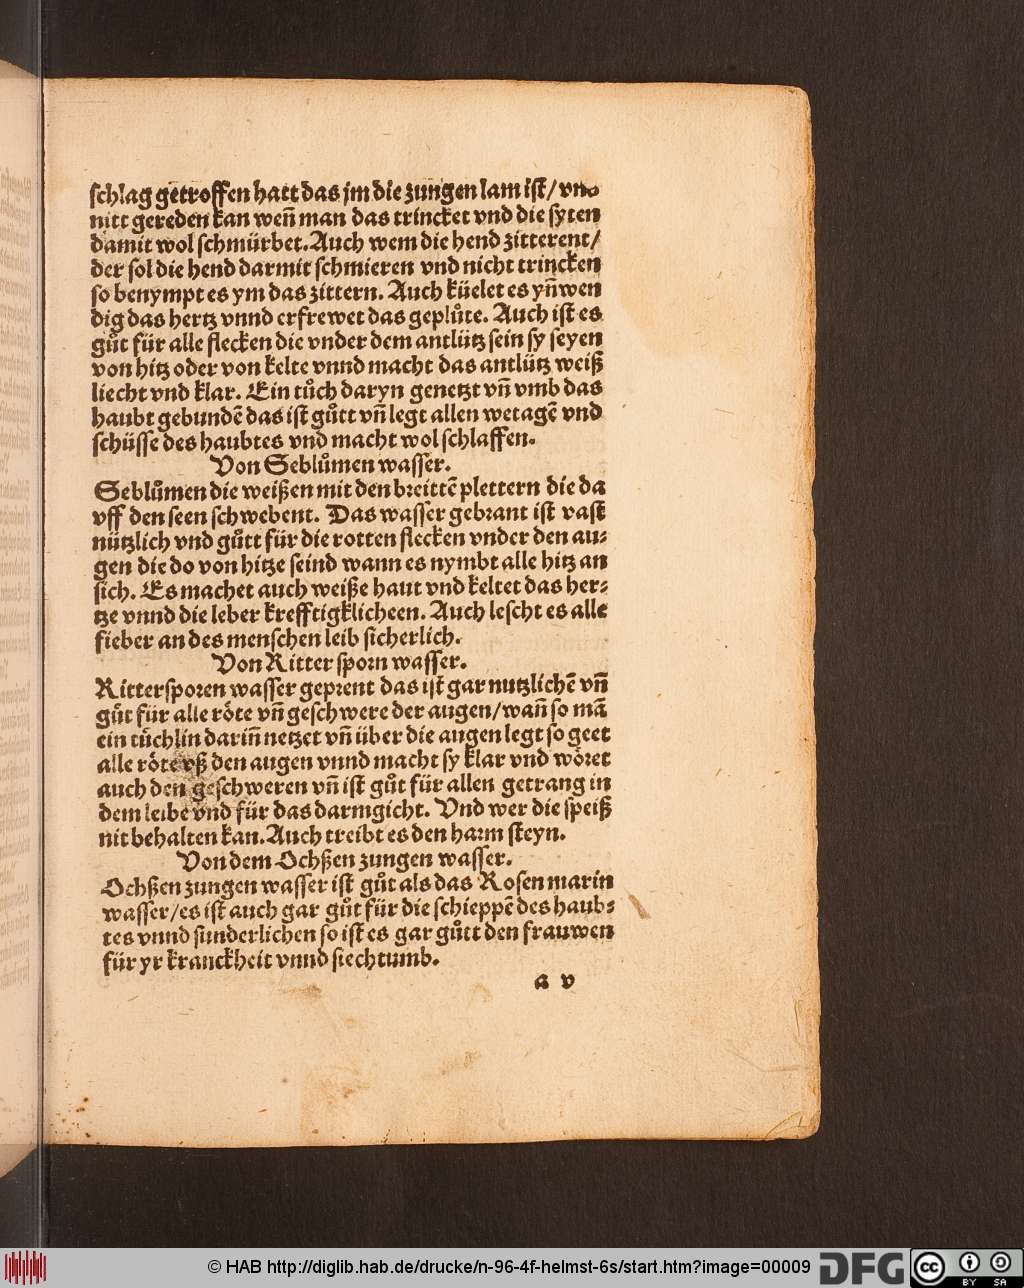 schlag getroffen hatt das jm die zungen lam ist/vnd
nitt gereden kan weñ man das trincket vnd die syten
damit wol schmürbet. Auch wem die hend zitterent/
der sol die hend darmit schmieren vnd nicht trincken
so benympt es ym das zittern. Auch küelet es yñwen
dig das hertz vnnd erfrewet das geplůte. Auch ist es
gůt für alle flecken die vnder dem antlütz sein sy seyen
von hitz oder von kelte vnnd macht das antlütz weiß
liecht vnd klar. Ein tůch daryn genetzt vñ vmb das
haubt gebundē das ist gůtt vñ legt allen wetagē vnd
schüsse des haubtes vnd macht wol schlaffen.
Von Seblůmen wasser.
Seblůmen die weißen mit den breittē plettern die da
vff den seen schwebent. Das wasser gebrant ist vast
nützlich vnd gůtt für die rotten flecken vnder den au-
gen die do von hitze seind wann es nymbt alle hitz an
sich. Es machet auch weiße haut vnd keltet das her-
tze vnnd die leber krefftigklicheen. Auch lescht es alle
fieber an des menschen leib sicherlich.
Von Ritter sporn wasser.
Rittersporen wasser geprent das ist gar nutzlichē vñ
gůt für alle röte vñ geschwere der augen/wañ so mā
ein tůchlin dariñ netzet vñ über die augen legt so geet
alle röte vß den augen vnnd macht sy klar vnd wöret
auch den geschweren vñ ist gůt für allen getrang in
dem leibe vnd für das darmgicht. Vnd wer die speiß
nit behalten kan. Auch treibt es den harm steyn.
Von dem Ochßen zungen wasser.
Ochßen zungen wasser ist gůt als das Rosen marin
wasser/es ist auch gar gůt für die schieppē des haub-
tes vnnd sunderlichen so ist es gar gůtt den frauwen
für yr kranckheit vnnd siechtumb.
a v
© HAB http://diglib.hab.de/drucke/n-96-4f-helmst-6s/start.htm?image=00009
DFG
cc
BY SA